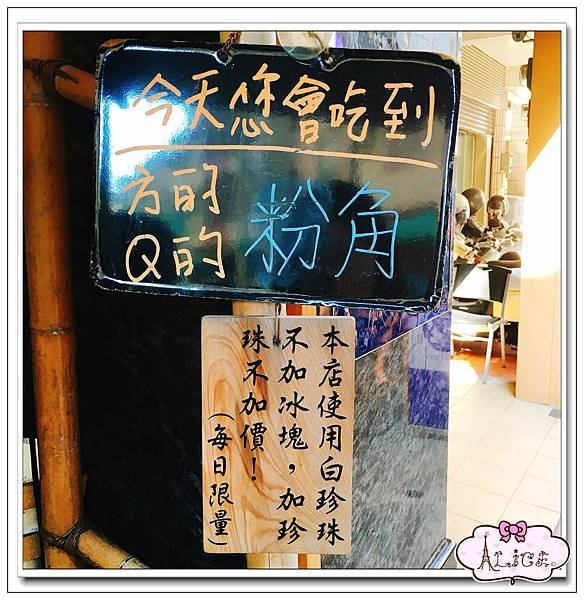 今天您會吃到
方的
Q的
粉角
本店使用白珍珠
不加冰塊，加珍
珠不加價！
（每日限量）
ALICE